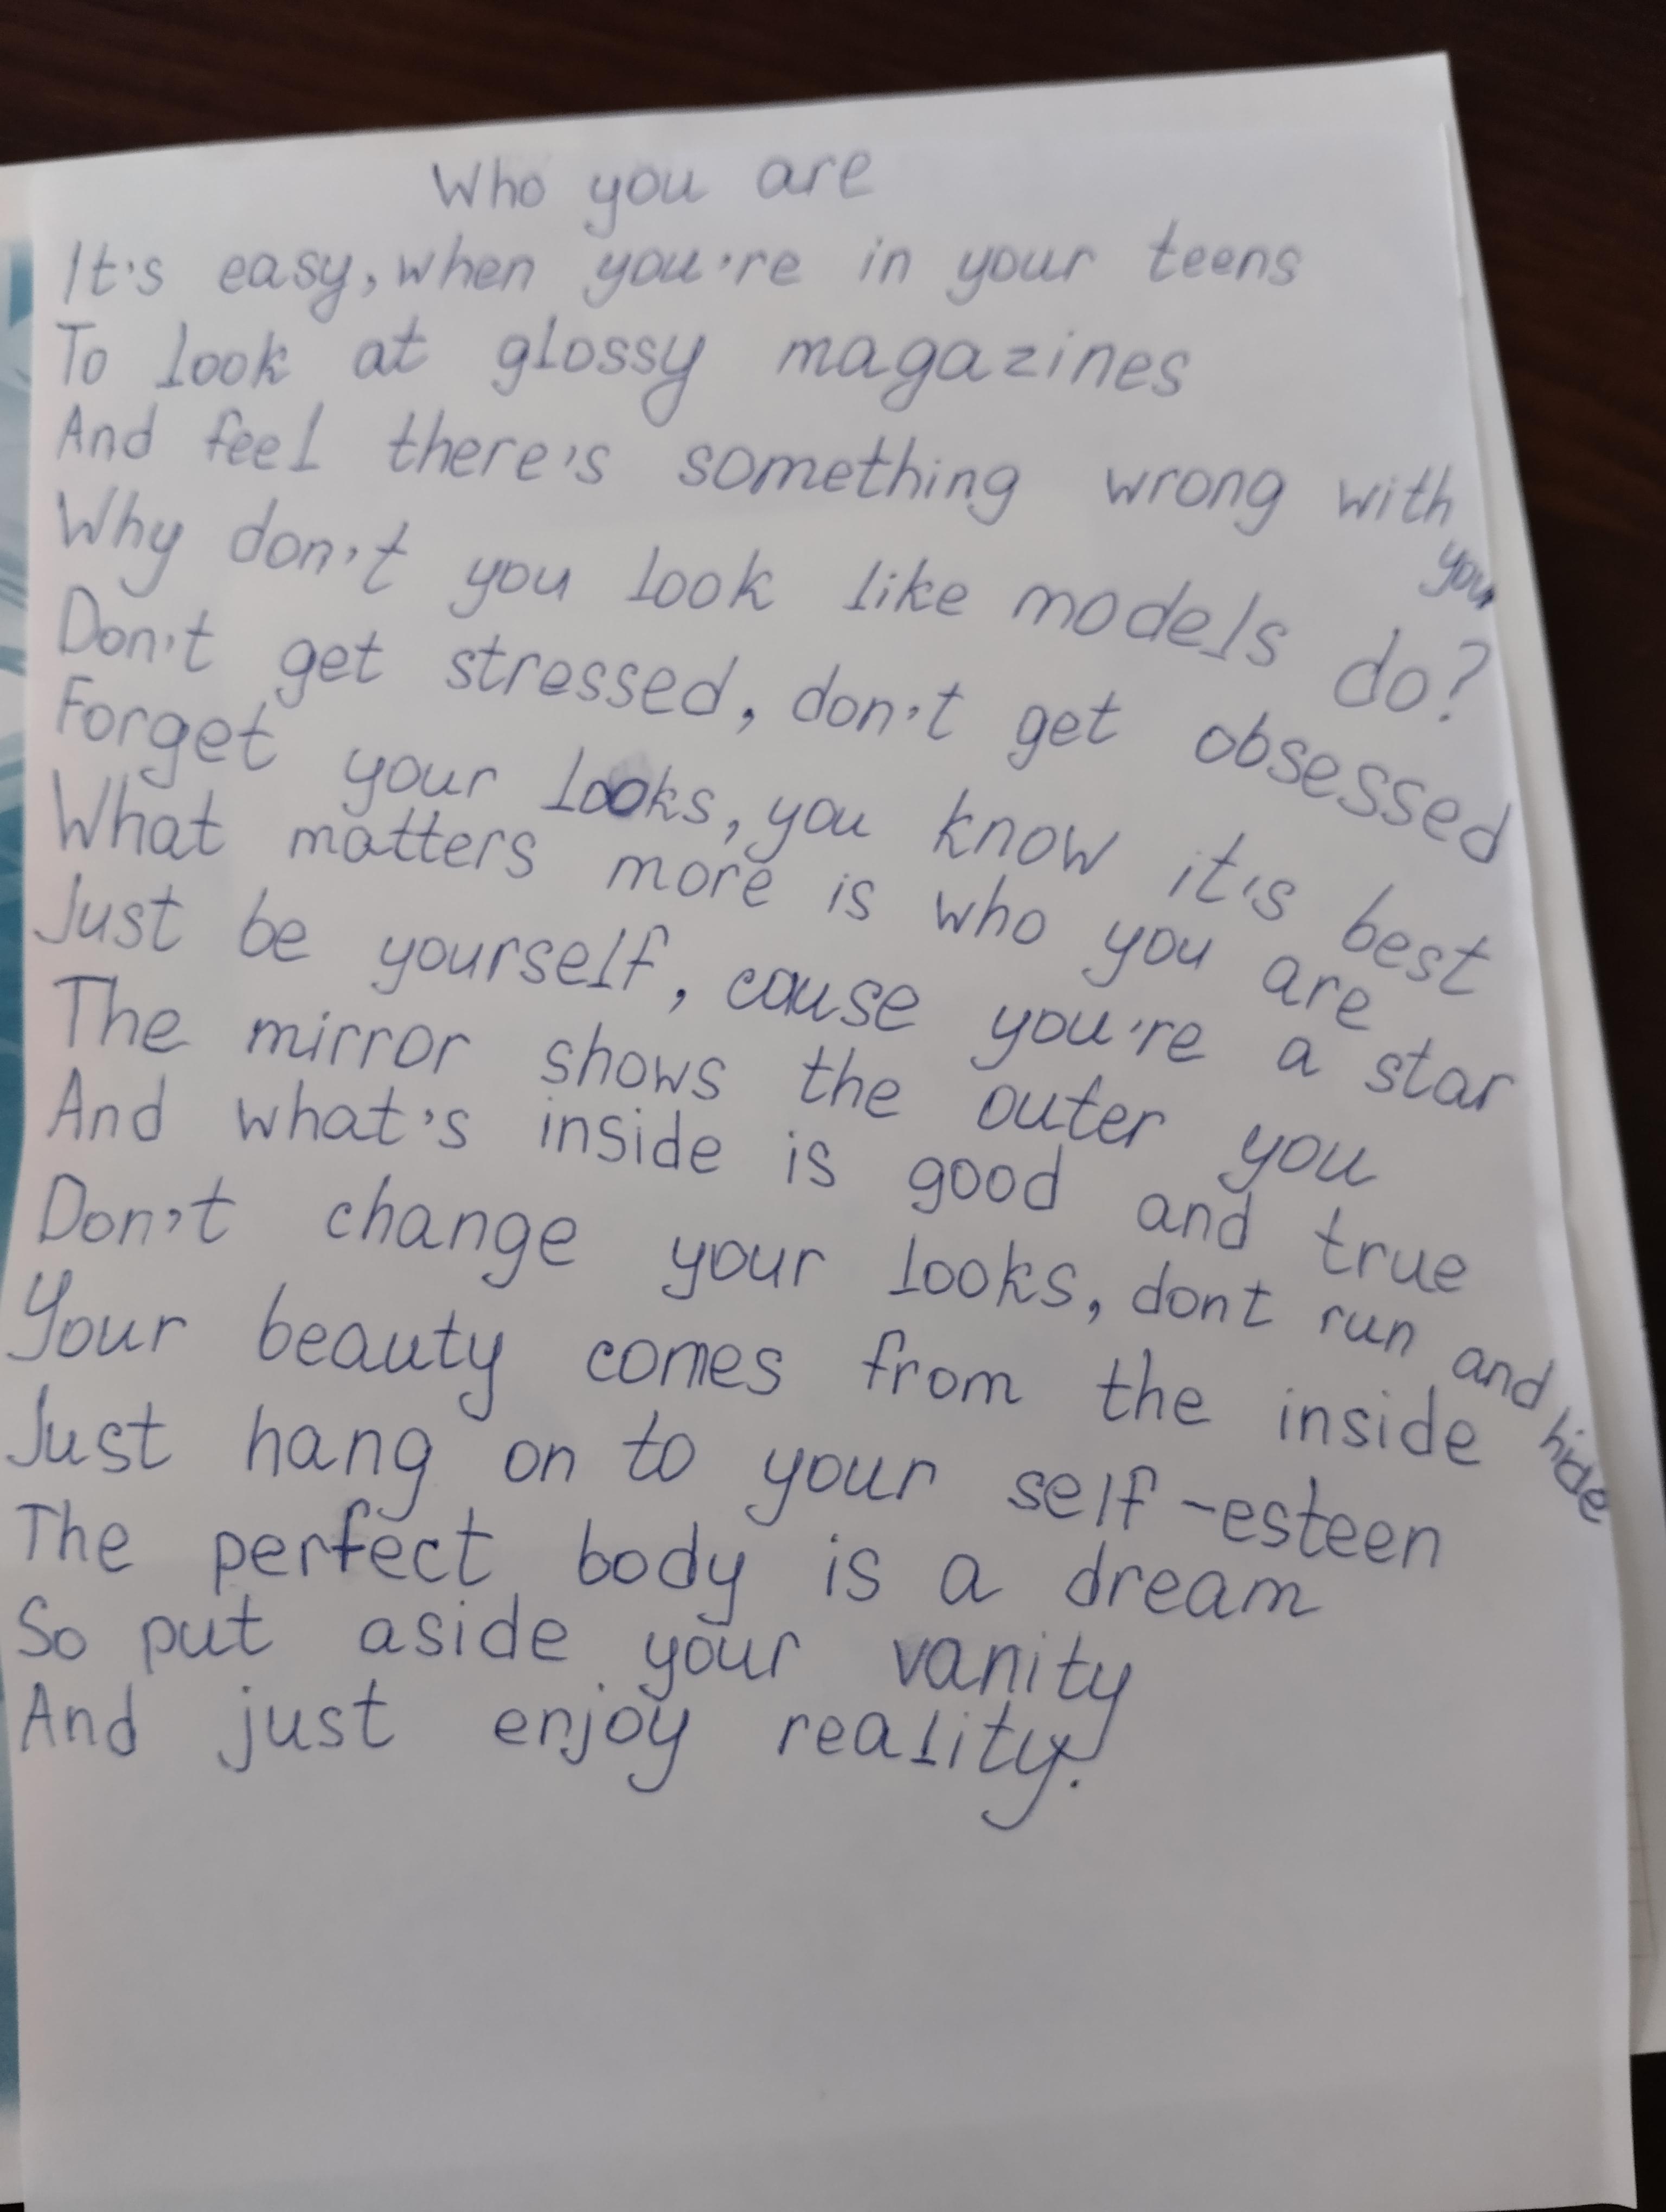 Who you are
It's easy, when you're in your teens
To look at glossy magazines
And feel there's something wrong with you
Why don't you look like models do?
Don't get stressed, don't get obsessed
Forget your looks, you know it's best
What matters more is who you are
Just be yourself, cause you're a star
The mirror shows the outer you
And what's inside is good and true
Don't change your looks, dont run and hide
Your beauty comes from the inside
Just hang on to your self-esteen
The perfect body is a dream
So put aside your vanity
And just enjoy reality.